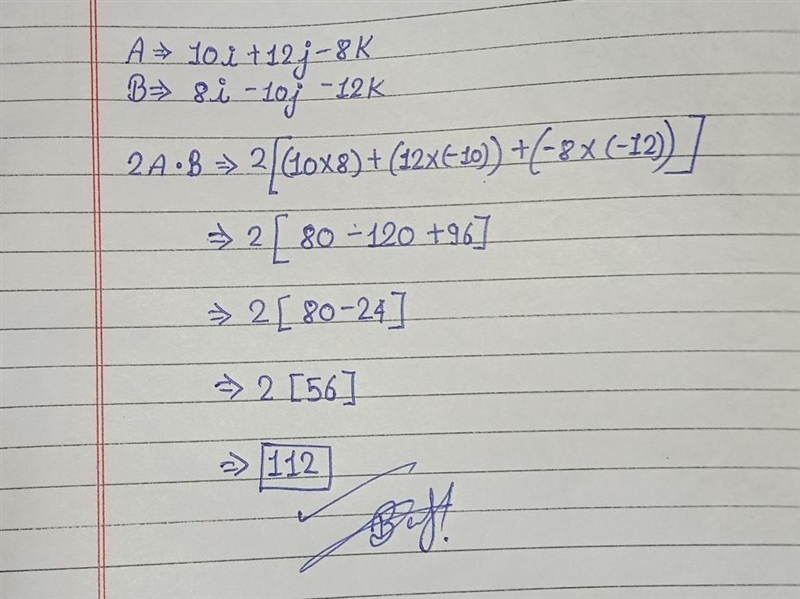 A ⇒ 10i + 12j - 8K
B ⇒ 8i - 10j - 12K
2A • B ⇒ 2[(10×8) + (12×(-10)) + (-8 × (-12))]
⇒ 2[ 80 - 120 + 96]
⇒ 2[ 80 - 24]
⇒ 2 [56]
⇒ 112